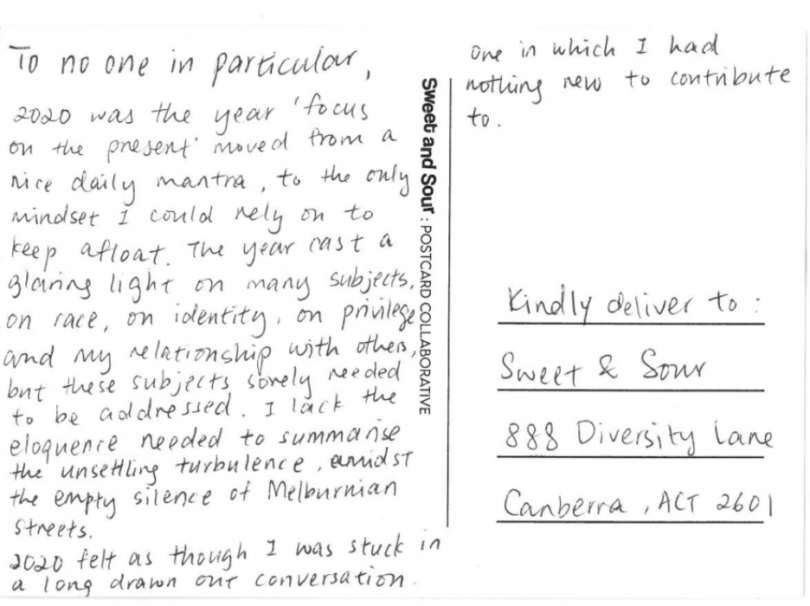 To no one in particular,
2020 was the year 'focus
on the present' moved from a
nice daily mantra, to the only
mindset I could rely on to
keep afloat. The year cast a
glaring light on many subjects,
on race, on identity, on privilege
and my relationship with others,
but these subjects sorely needed
to be addressed. I lack the
eloquence needed to summarise
the unsettling turbulence, amidst
the empty silence of Melburnian
streets.
2020 felt as though I was stuck in
a long drawn out conversation.
Sweet and Sour: POSTCARD COLLABORATIVE
one in which I had
nothing new to contribute
to.
Kindly deliver to:
Sweet & Sour
888 Diversity Lane
Canberra, ACT 2601